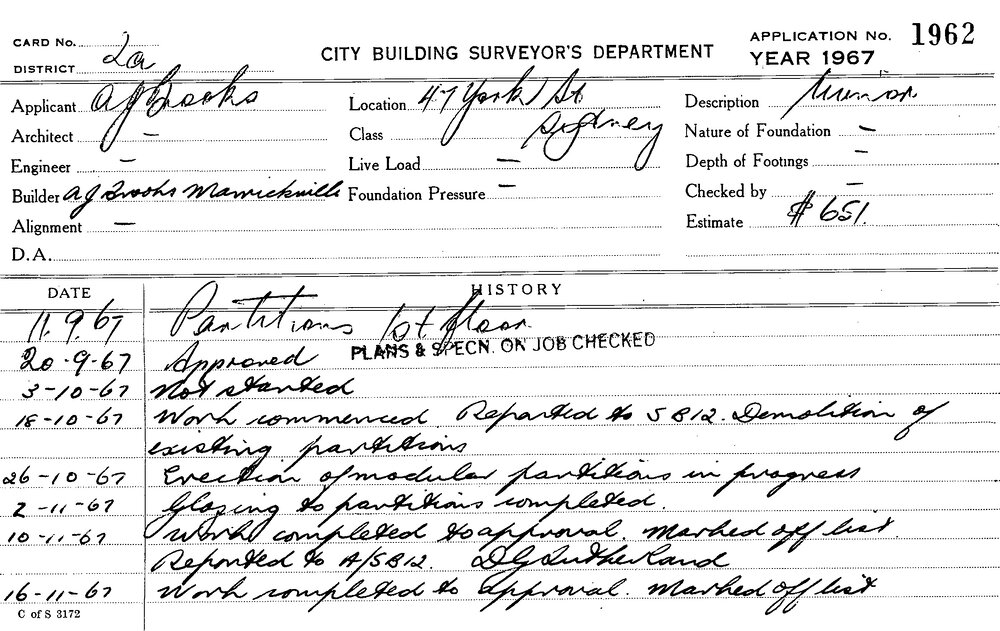 CARD No.
DISTRICT 2a
CITY BUILDING SURVEYOR'S DEPARTMENT
APPLICATION No. 1962
YEAR 1967
Applicant A J Brooks
Location 47 York St
Sydney
Description Minor
Architect —
Class
Nature of Foundation —
Engineer —
Live Load —
Depth of Footings —
Builder A J Brooks Marrickville
Foundation Pressure —
Checked by —
Alignment —
Estimate $651.
D.A.
DATE HISTORY
11.9.67 Partitions 1st floor
20-9-67 Approved PLANS & SPECN. ON JOB CHECKED
3-10-67 Not started
18-10-67 Work commenced Reported to SB12. Demolition of
existing partitions
26-10-67 Erection of modular partitions in progress
2-11-67 Glazing to partitions completed.
10-11-67 Work completed to approval. Marked off list
Reported to A/SB12. D G Sutherland
16-11-67 Work completed to approval. Marked off list
C of S 3172